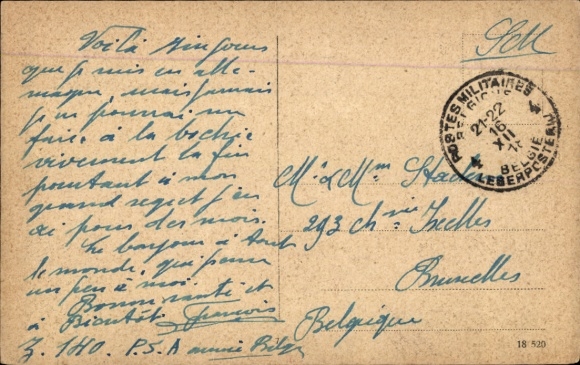 Voilà cinq jours
que je suis en alle-
magne, mais jamais
je ne pourrai m'y
faire, à la
vivement la fin
pourtant à mon
grand regret j'en
ai pour des mois.
Le bonjour à tout
le monde, qui pense
un peu à moi
Bonne santé et
à Bientôt François
Z. 140. P.S.A armée Belge
SM
POSTES MILITAIRES
BELGIQUE
21-22
16
XII
BELGIE
LEGERPOSTERIJ
Mr & Mme
293 Chée Ixelles
Bruxelles
Belgique
18 520